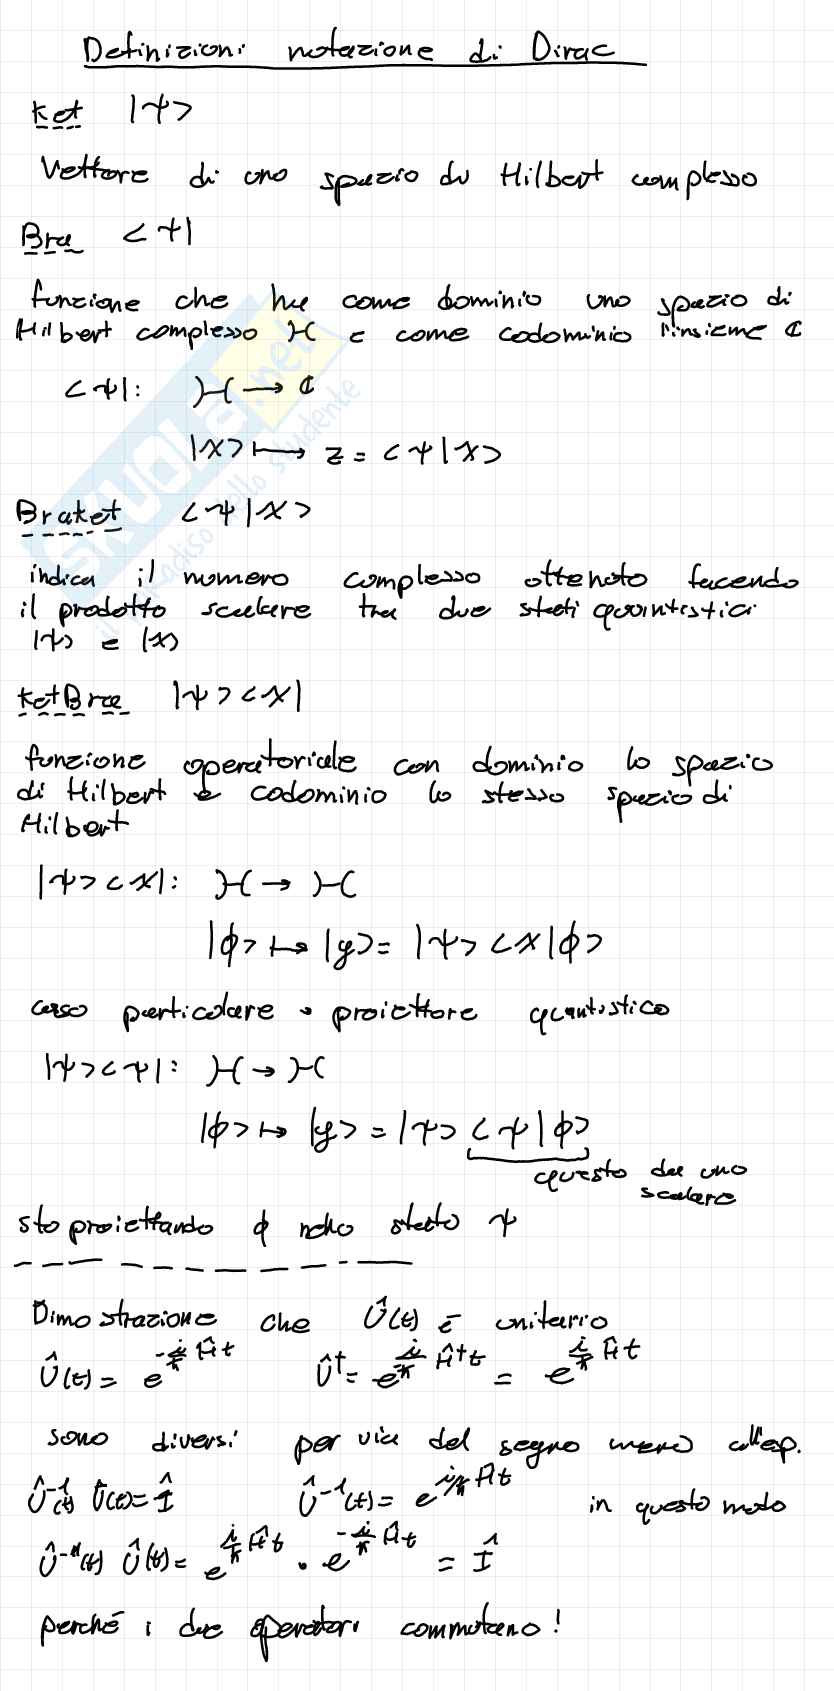 Definizioni notazione di Dirac
Ket |ψ>
Vettore di uno spazio di Hilbert complesso
Bra <ψ|
funzione che ha come dominio uno spazio di
Hilbert complesso ℋ e come codominio l'insieme ℂ
<ψ|: ℋ → ℂ
|x> ↦ z = <ψ|x>
Braket <ψ|x>
indica il numero complesso ottenuto facendo
il prodotto scalare tra due stati quantistici
|ψ> e |x>
KetBra |ψ><x|
funzione operatoriale con dominio lo spazio
di Hilbert e codominio lo stesso spazio di
Hilbert
|ψ><x|: ℋ → ℋ
|ϕ> ↦ |y> = |ψ><x|ϕ>
caso particolare • proiettore quantistico
|ψ><ψ|: ℋ → ℋ
|ϕ> ↦ |y> = |ψ><ψ|ϕ>
questo da uno
scalare
sto proiettando ϕ nello stato ψ
Dimostrazione che Û(t) è unitario
Û(t) = e^{-i/ħ Ĥt} Û† = e^{i/ħ Ĥ†t} = e^{i/ħ Ĥt}
sono diversi per via del segno meno all'esp.
Û⁻¹(t) Û(t) = Î Û⁻¹(t) = e^{i/ħ Ĥt} in questo modo
Û⁻¹(t) Û(t) = e^{i/ħ Ĥt} · e^{-i/ħ Ĥt} = Î
perché i due operatori commutano!
SKUOLA.net
il paradiso dello studente